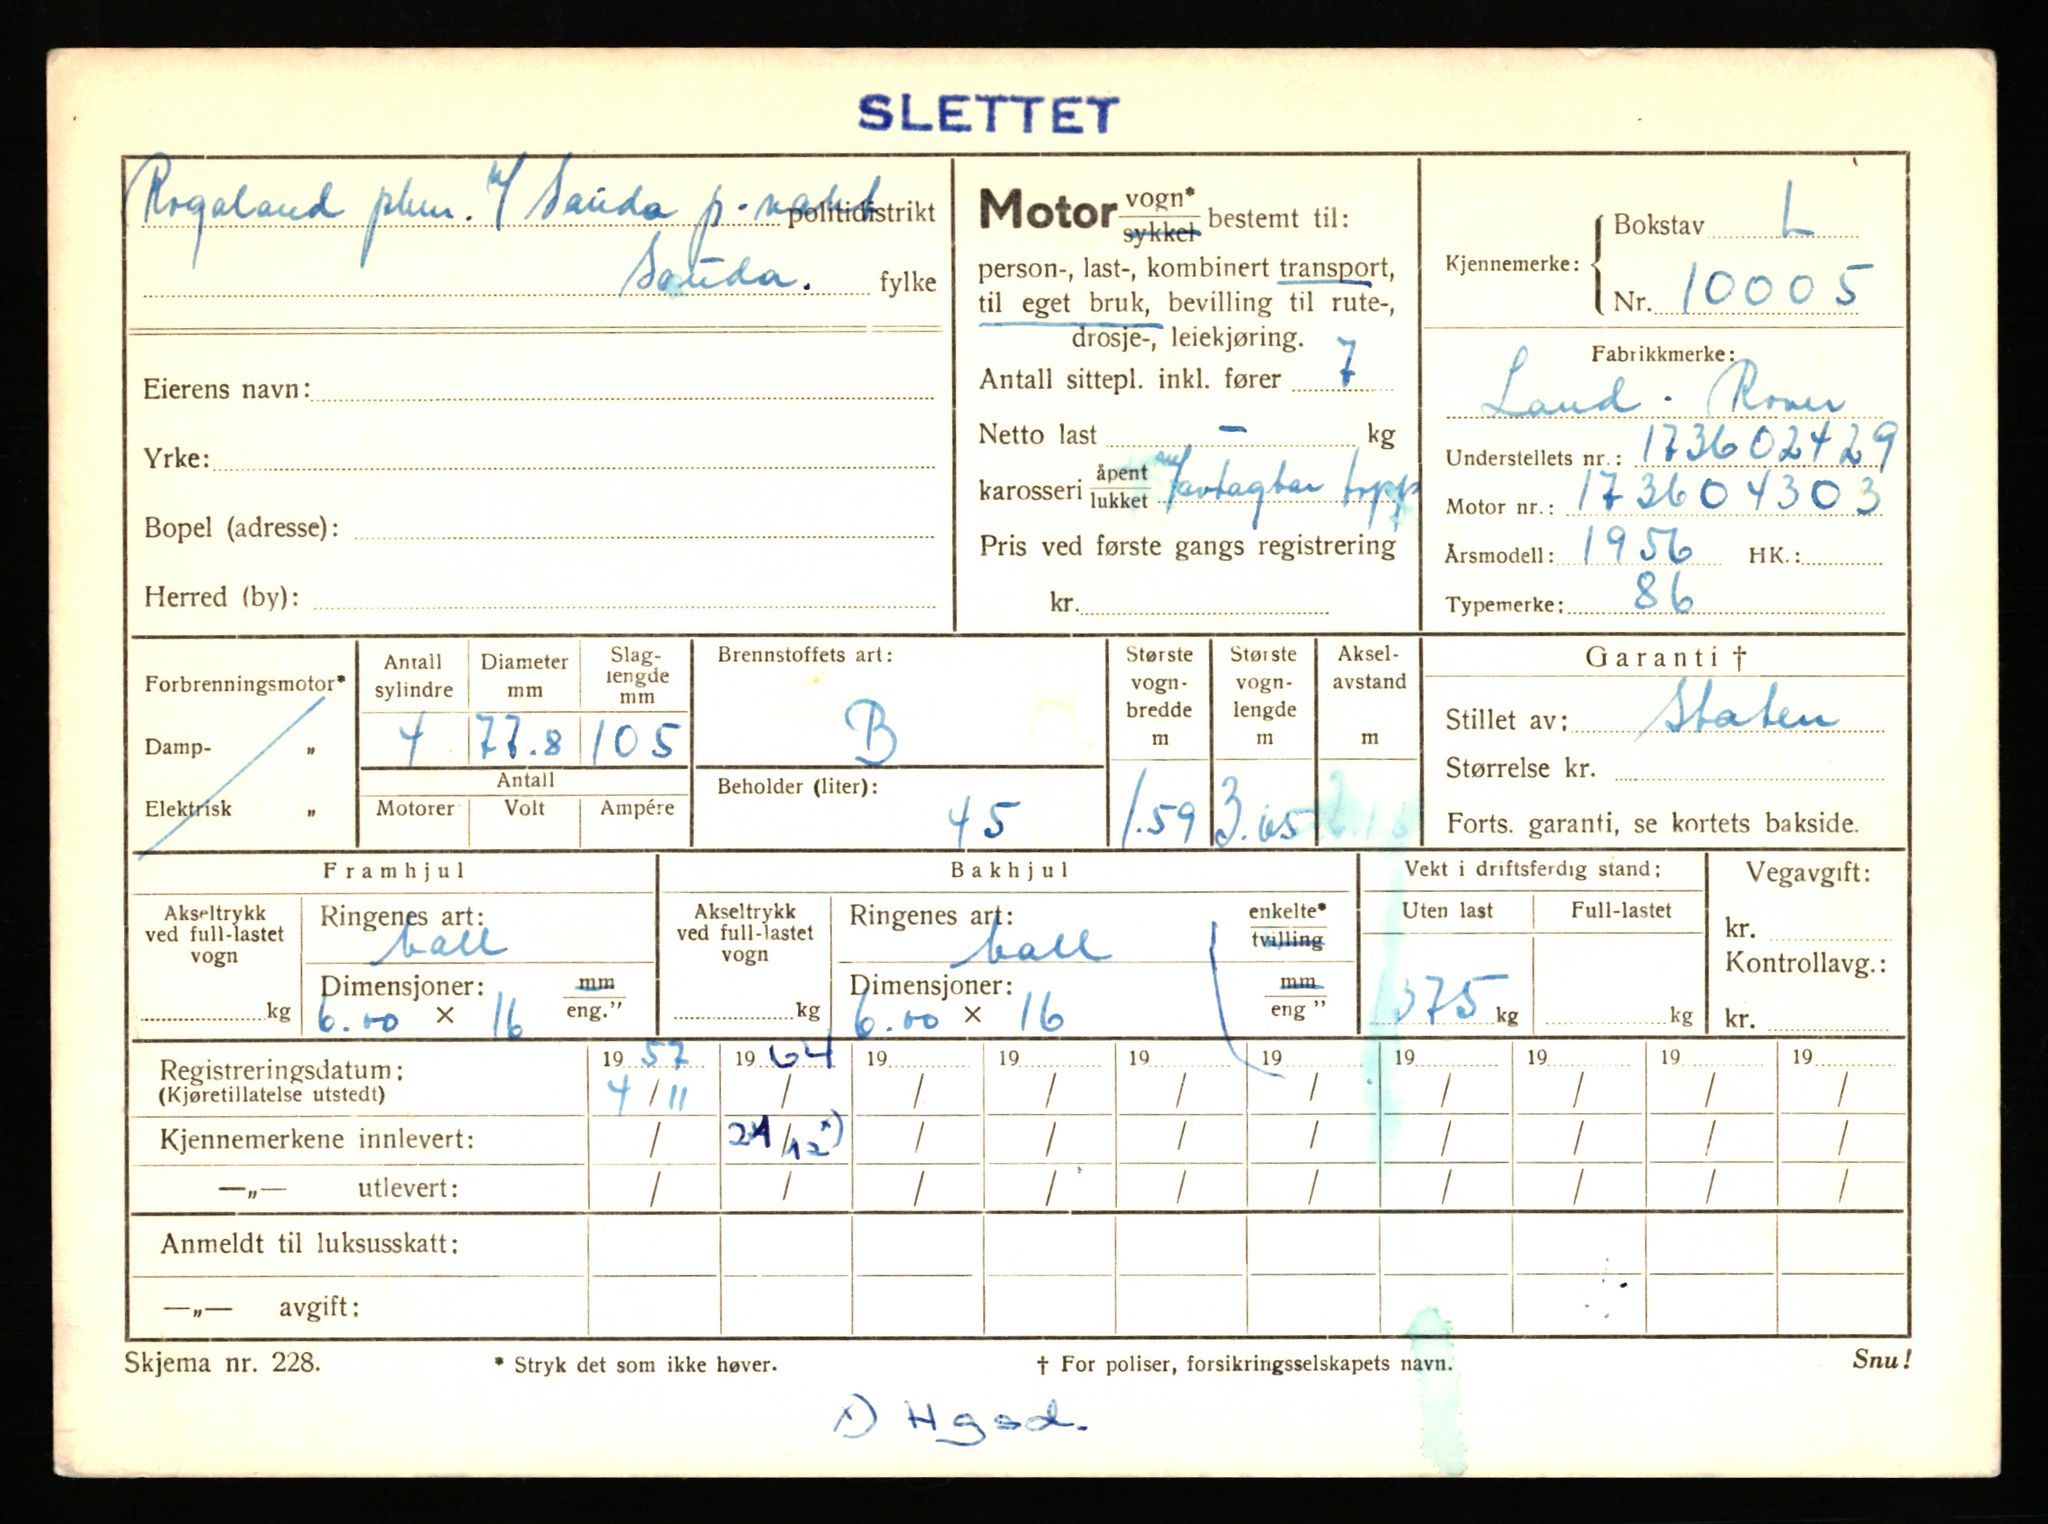 SLETTET
Rogaland pkm. v/ Sauda p.vakt politidistrikt
Sauda. fylke
Eierens navn:
Yrke:
Bopel (adresse):
Herred (by):
Motor vogn* sykkel bestemt til:
person-, last-, kombinert transport,
til eget bruk, bevilling til rute-,
drosje-, leiekjøring.
Antall sittepl. inkl. fører 7
Netto last - kg
karosseri åpent lukket avtagbar topp
Pris ved første gangs registrering
kr.
Kjennemerke: Bokstav L
Nr. 10005
Fabrikkmerke:
Land-Rover
Understellets nr.: 173602429
Motor nr.: 173604303
Årsmodell: 1956 HK.:
Typemerke: 86
Forbrenningsmotor*
Damp- „
Elektrisk „
Antall sylindre Diameter mm Slaglengde mm
4 77.8 105
Antall
Motorer Volt Ampére
Brennstoffets art:
B
Beholder (liter):
45
Største vognbredde m
1.59
Største vognlengde m
3.65
Akselavstand m
Garanti †
Stillet av: Staten
Størrelse kr.
Forts. garanti, se kortets bakside.
Framhjul
Akseltrykk ved full-lastet vogn
kg
Ringenes art:
ball
Dimensjoner: mm eng."
6.00 × 16
Bakhjul
Akseltrykk ved full-lastet vogn
kg
Ringenes art: enkelte* tvilling
ball
Dimensjoner: mm eng"
6.00 × 16
Vekt i driftsferdig stand:
Uten last Full-lastet
1375 kg kg
Vegavgift:
kr.
Kontrollavg.:
kr.
Registreringsdatum: 19 57 19 64 19 19 19 19 19 19 19 19
(Kjøretillatelse utstedt) 4/11 / / / / / / / / /
Kjennemerkene innlevert: / 21/12 x) / / / / / / / /
—„— utlevert: / / / / / / / / / /
Anmeldt til luksusskatt:
—„— avgift:
Skjema nr. 228. * Stryk det som ikke høver. † For poliser, forsikringsselskapets navn. Snu!
x) Hgsd.